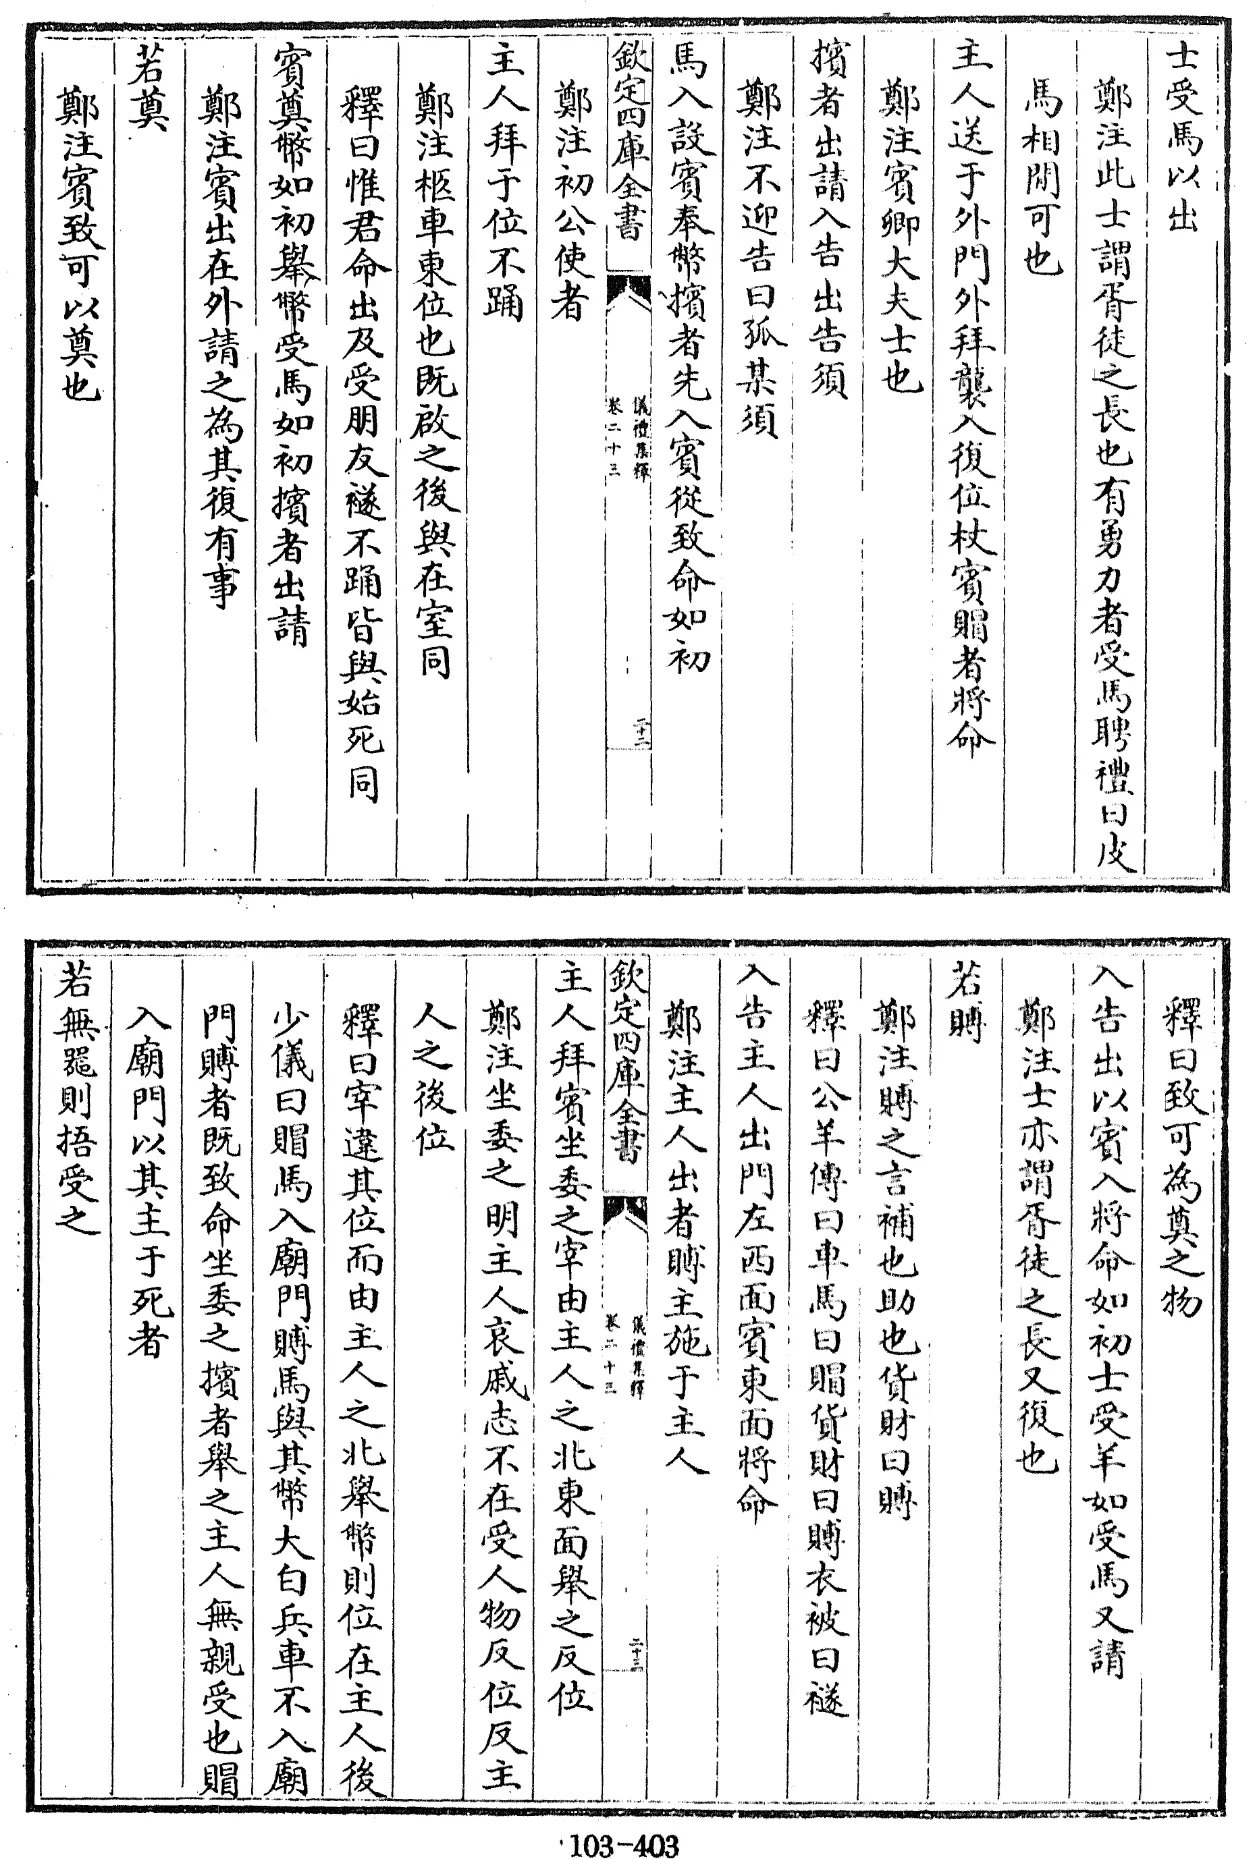 士受馬以出
鄭注此士謂胥徒之長也有勇力者受馬聘禮曰皮
馬相間可也
主人送于外門外拜襲入復位杖賓賵者將命
鄭注賓卿大夫士也
擯者出請入告出告須
鄭注不迎告曰孤某須
馬入設賓奉幣擯者先入賓從致命如初
欽定四庫全書
儀禮集釋
卷二十三
二十二
鄭注初公使者
主人拜于位不踊
鄭注柩車東位也既啟之後與在室同
釋曰惟君命出及受朋友襚不踊皆與始死同
賓奠幣如初舉幣受馬如初擯者出請
鄭注賓出在外請之為其復有事
若奠
鄭注賓致可以奠也
釋曰致可為奠之物
入告出以賓入將命如初士受羊如受馬又請
鄭注士亦謂胥徒之長又復也
若賻
鄭注賻之言補也助也貨財曰賻
釋曰公羊傳曰車馬曰賵貨財曰賻衣被曰襚
入告主人出門左西面賓東面將命
鄭注主人出者賻主施于主人
欽定四庫全書
儀禮集釋
卷二十三
二十三
主人拜賓坐委之宰由主人之北東面舉之反位
鄭注坐委之明主人哀戚志不在受人物反位反主
人之後位
釋曰宰違其位而由主人之北舉幣則位在主人後
少儀曰賵馬入廟門賻馬與其幣大白兵車不入廟
門賻者既致命坐委之擯者舉之主人無親受也賵
入廟門以其主于死者
若無器則捂受之
103-403